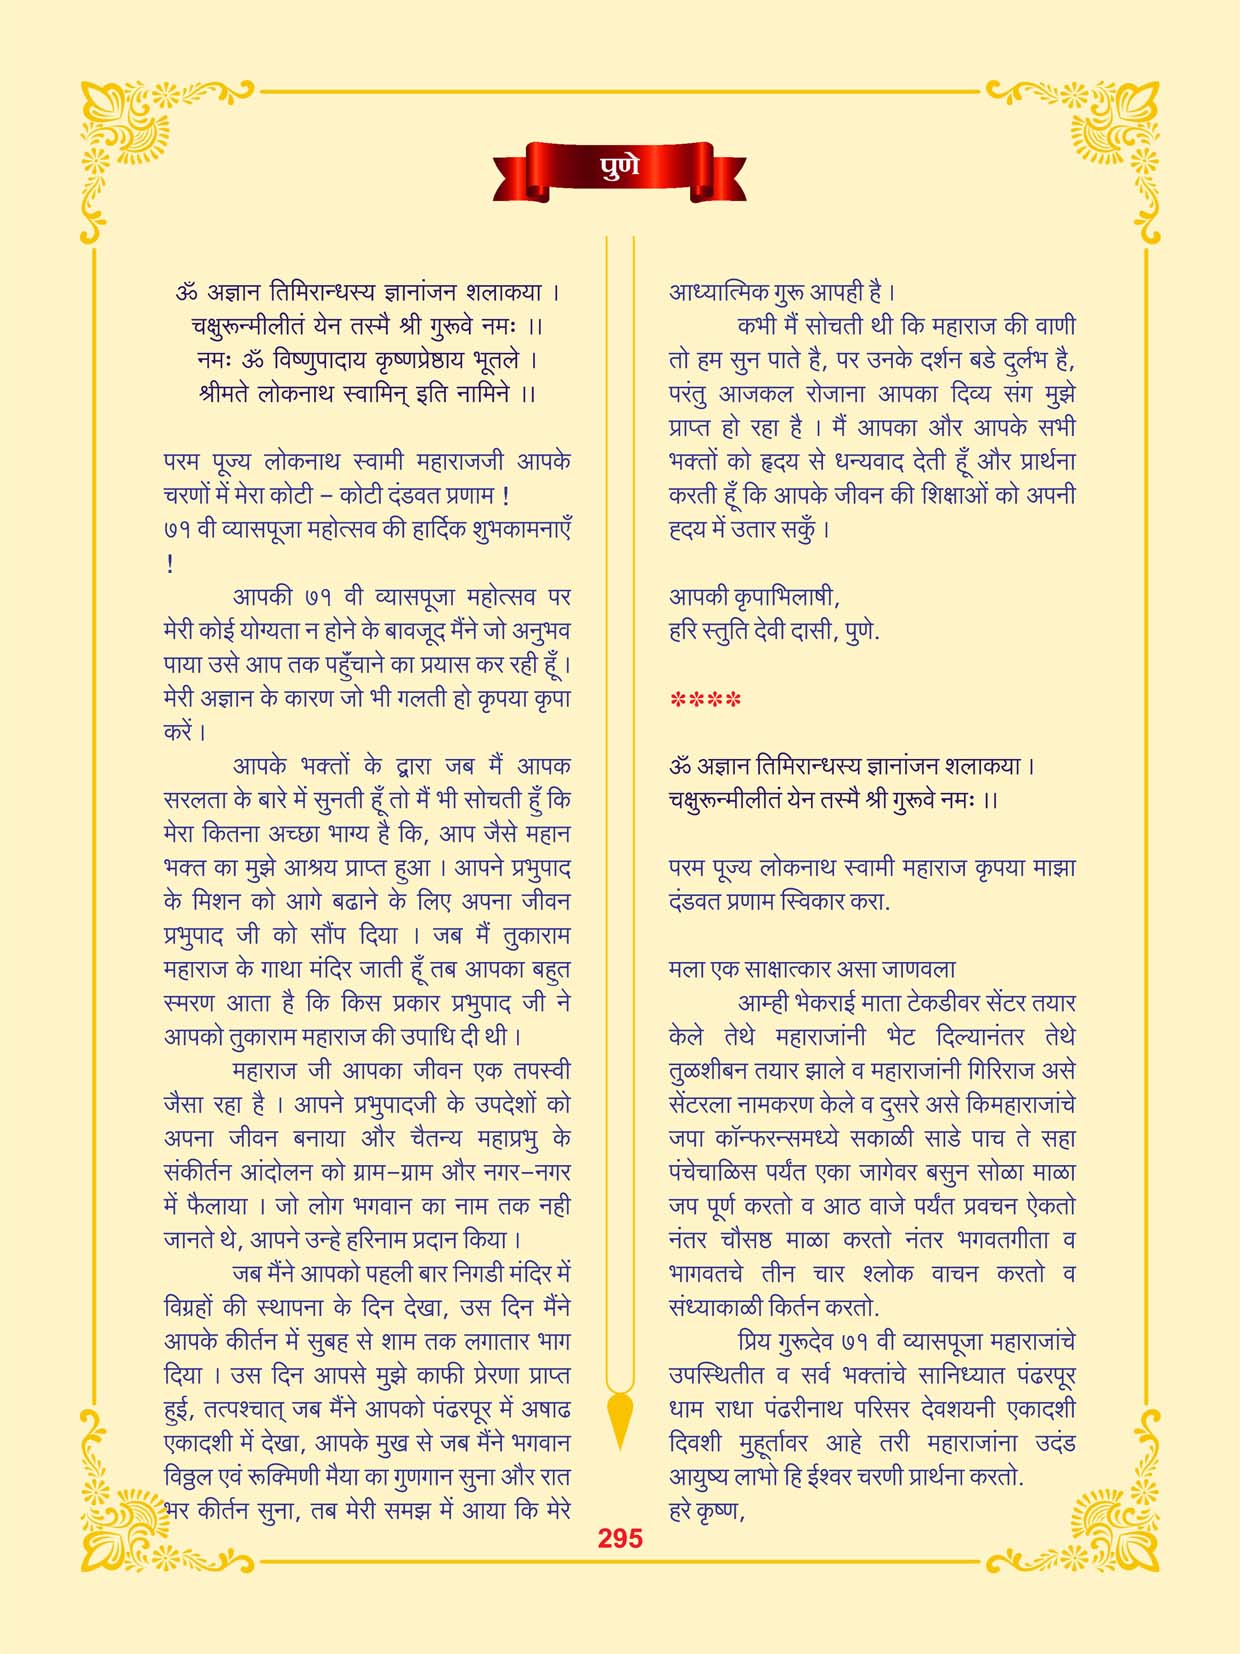 पुणे
ॐ अज्ञान तिमिरान्धस्य ज्ञानांजन शलाकया ।
चक्षुरून्मीलीतं येन तस्मै श्री गुरूवे नमः ।।
नमः ॐ विष्णुपादाय कृष्णप्रेष्ठाय भूतले ।
श्रीमते लोकनाथ स्वामिन् इति नामिने ।।
परम पूज्य लोकनाथ स्वामी महाराजजी आपके
चरणों में मेरा कोटी – कोटी दंडवत प्रणाम !
७१ वी व्यासपूजा महोत्सव की हार्दिक शुभकामनाएँ
!
आपकी ७१ वी व्यासपूजा महोत्सव पर
मेरी कोई योग्यता न होने के बावजूद मैंने जो अनुभव
पाया उसे आप तक पहुँचाने का प्रयास कर रही हूँ ।
मेरी अज्ञान के कारण जो भी गलती हो कृपया कृपा
करें ।
आपके भक्तों के द्वारा जब मैं आपक
सरलता के बारे में सुनती हूँ तो मैं भी सोचती हुँ कि
मेरा कितना अच्छा भाग्य है कि, आप जैसे महान
भक्त का मुझे आश्रय प्राप्त हुआ । आपने प्रभुपाद
के मिशन को आगे बढाने के लिए अपना जीवन
प्रभुपाद जी को सौंप दिया । जब मैं तुकाराम
महाराज के गाथा मंदिर जाती हूँ तब आपका बहुत
स्मरण आता है कि किस प्रकार प्रभुपाद जी ने
आपको तुकाराम महाराज की उपाधि दी थी ।
महाराज जी आपका जीवन एक तपस्वी
जैसा रहा है । आपने प्रभुपादजी के उपदेशों को
अपना जीवन बनाया और चैतन्य महाप्रभु के
संकीर्तन आंदोलन को ग्राम–ग्राम और नगर–नगर
में फैलाया । जो लोग भगवान का नाम तक नही
जानते थे, आपने उन्हे हरिनाम प्रदान किया ।
जब मैंने आपको पहली बार निगडी मंदिर में
विग्रहों की स्थापना के दिन देखा, उस दिन मैंने
आपके कीर्तन में सुबह से शाम तक लगातार भाग
दिया । उस दिन आपसे मुझे काफी प्रेरणा प्राप्त
हुई, तत्पश्चात् जब मैंने आपको पंढरपूर में अषाढ
एकादशी में देखा, आपके मुख से जब मैंने भगवान
विठ्ठल एवं रूक्मिणी मैया का गुणगान सुना और रात
भर कीर्तन सुना, तब मेरी समझ में आया कि मेरे
आध्यात्मिक गुरू आपही है ।
कभी मैं सोचती थी कि महाराज की वाणी
तो हम सुन पाते है, पर उनके दर्शन बडे दुर्लभ है,
परंतु आजकल रोजाना आपका दिव्य संग मुझे
प्राप्त हो रहा है । मैं आपका और आपके सभी
भक्तों को हृदय से धन्यवाद देती हूँ और प्रार्थना
करती हूँ कि आपके जीवन की शिक्षाओं को अपनी
ह्दय में उतार सकुँ ।
आपकी कृपाभिलाषी,
हरि स्तुति देवी दासी, पुणे.
****
ॐ अज्ञान तिमिरान्धस्य ज्ञानांजन शलाकया ।
चक्षुरून्मीलीतं येन तस्मै श्री गुरूवे नमः ।।
परम पूज्य लोकनाथ स्वामी महाराज कृपया माझा
दंडवत प्रणाम स्विकार करा.
मला एक साक्षात्कार असा जाणवला
आम्ही भेकराई माता टेकडीवर सेंटर तयार
केले तेथे महाराजांनी भेट दिल्यानंतर तेथे
तुळशीबन तयार झाले व महाराजांनी गिरिराज असे
सेंटरला नामकरण केले व दुसरे असे किमहाराजांचे
जपा कॉन्फरन्समध्ये सकाळी साडे पाच ते सहा
पंचेचाळिस पर्यंत एका जागेवर बसुन सोळा माळा
जप पूर्ण करतो व आठ वाजे पर्यंत प्रवचन ऐकतो
नंतर चौसष्ठ माळा करतो नंतर भगवतगीता व
भागवतचे तीन चार श्लोक वाचन करतो व
संध्याकाळी किर्तन करतो.
प्रिय गुरूदेव ७१ वी व्यासपूजा महाराजांचे
उपस्थितीत व सर्व भक्तांचे सानिध्यात पंढरपूर
धाम राधा पंढरीनाथ परिसर देवशयनी एकादशी
दिवशी मुहूर्तावर आहे तरी महाराजांना उदंड
आयुष्य लाभो हि ईश्वर चरणी प्रार्थना करतो.
हरे कृष्ण,
295